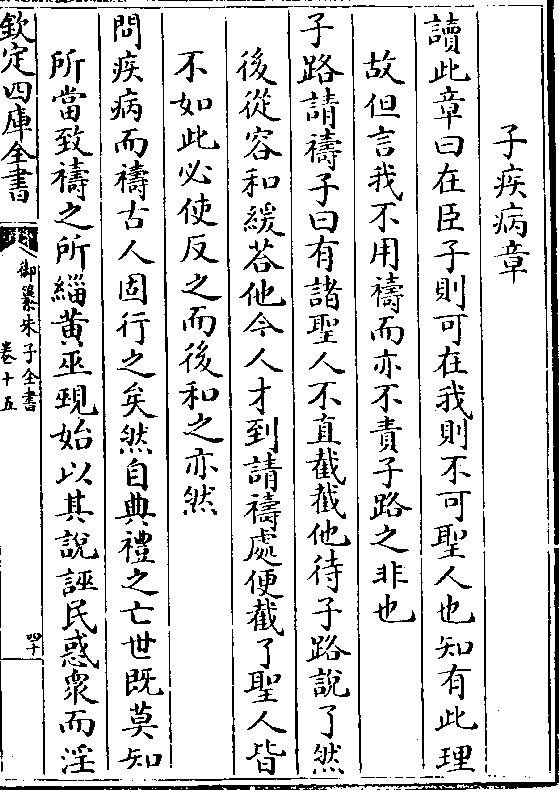 子疾病章
讀此章曰在臣子則可在我則不可聖人也知有此理
故但言我不用禱而亦不責子路之非也
子路請禱子曰有諸聖人不直截截他待子路說了然
後從容和緩荅他今人才到請禱處便截了聖人皆
不如此必使反之而後和之亦然
問疾病而禱古人固行之矣然自典禮之亡世既莫知
所當致禱之所緇黄巫覡始以其說誣民惑衆而淫
欽定四庫全書
御纂朱子全書
卷十五
四十